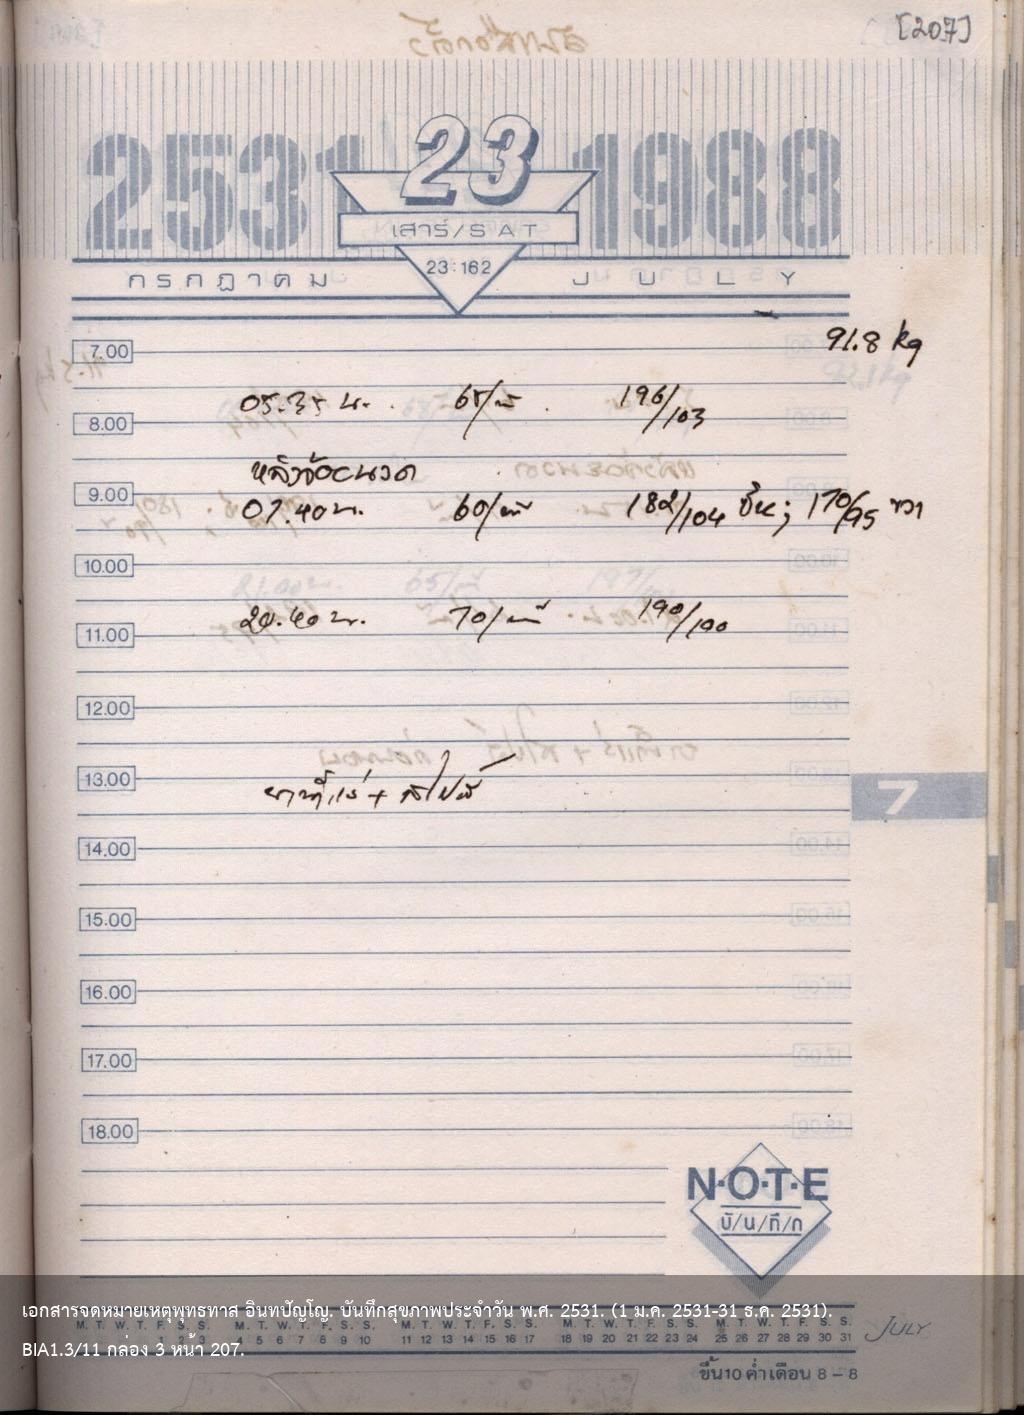 [207]
2531 23 1988
เสาร์/SAT
23:162
กรกฎาคม JULY
7.00 91.8 kg
05.35 น. 196/103
8.00
9.00
07.40 น. 60/น 182/104 ; 170/95
10.00
70/น 190/100
11.00
12.00
13.00
7
14.00
15.00
16.00
17.00
18.00
N·O·T·E
บั/น/ทึ/ก
เอกสารจดหมายเหตุพุทธทาส อินทปัญโญ. บันทึกสุขภาพประจำวัน พ.ศ. 2531. (1 ม.ค. 2531-31 ธ.ค. 2531).
M. T. W. T. F. S. S. M. T. W. T. F. S. S. M. T. W. T. F. S. S. M. T. W. T. F. S. S. M. T. W. T. F. S. S.
1 2 3 4 5 6 7 8 9 10 11 12 13 14 15 16 17 18 19 20 21 22 23 24 25 26 27 28 29 30 31 JULY
BIA1.3/11 กล่อง 3 หน้า 207.
ขึ้น10 ค่ำ เดือน 8 – 8